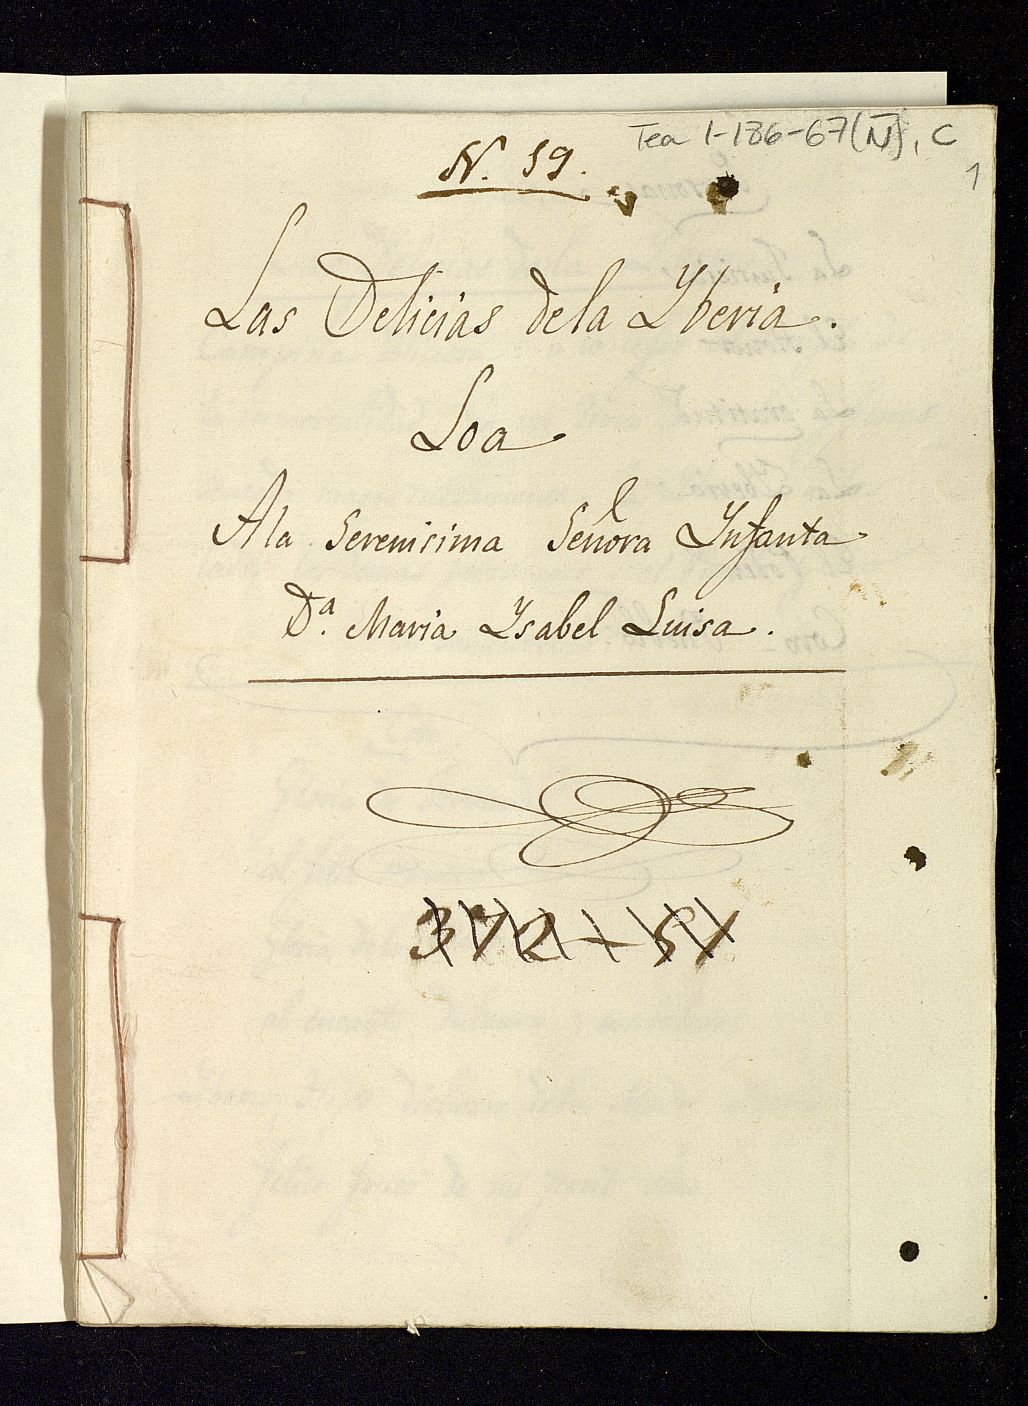 Tea 1-186-67(N), C
1
N. 59.
Las Delicias dela Yberia.
Loa
Ala Serenisima Señora Ynfanta
D.ª Maria Ysabel Luisa.